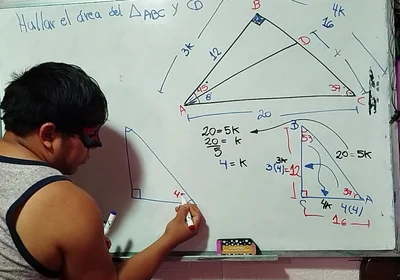 Hallar el área del △ABC y CD
B
3K
12
4K
16
D
x
A
45°
8°
37°
C
20
20=5K
20/5 = K
4 = K
B
53
3K
3(4)=12
20=5K
37°
C
4K
A
4(4)
16